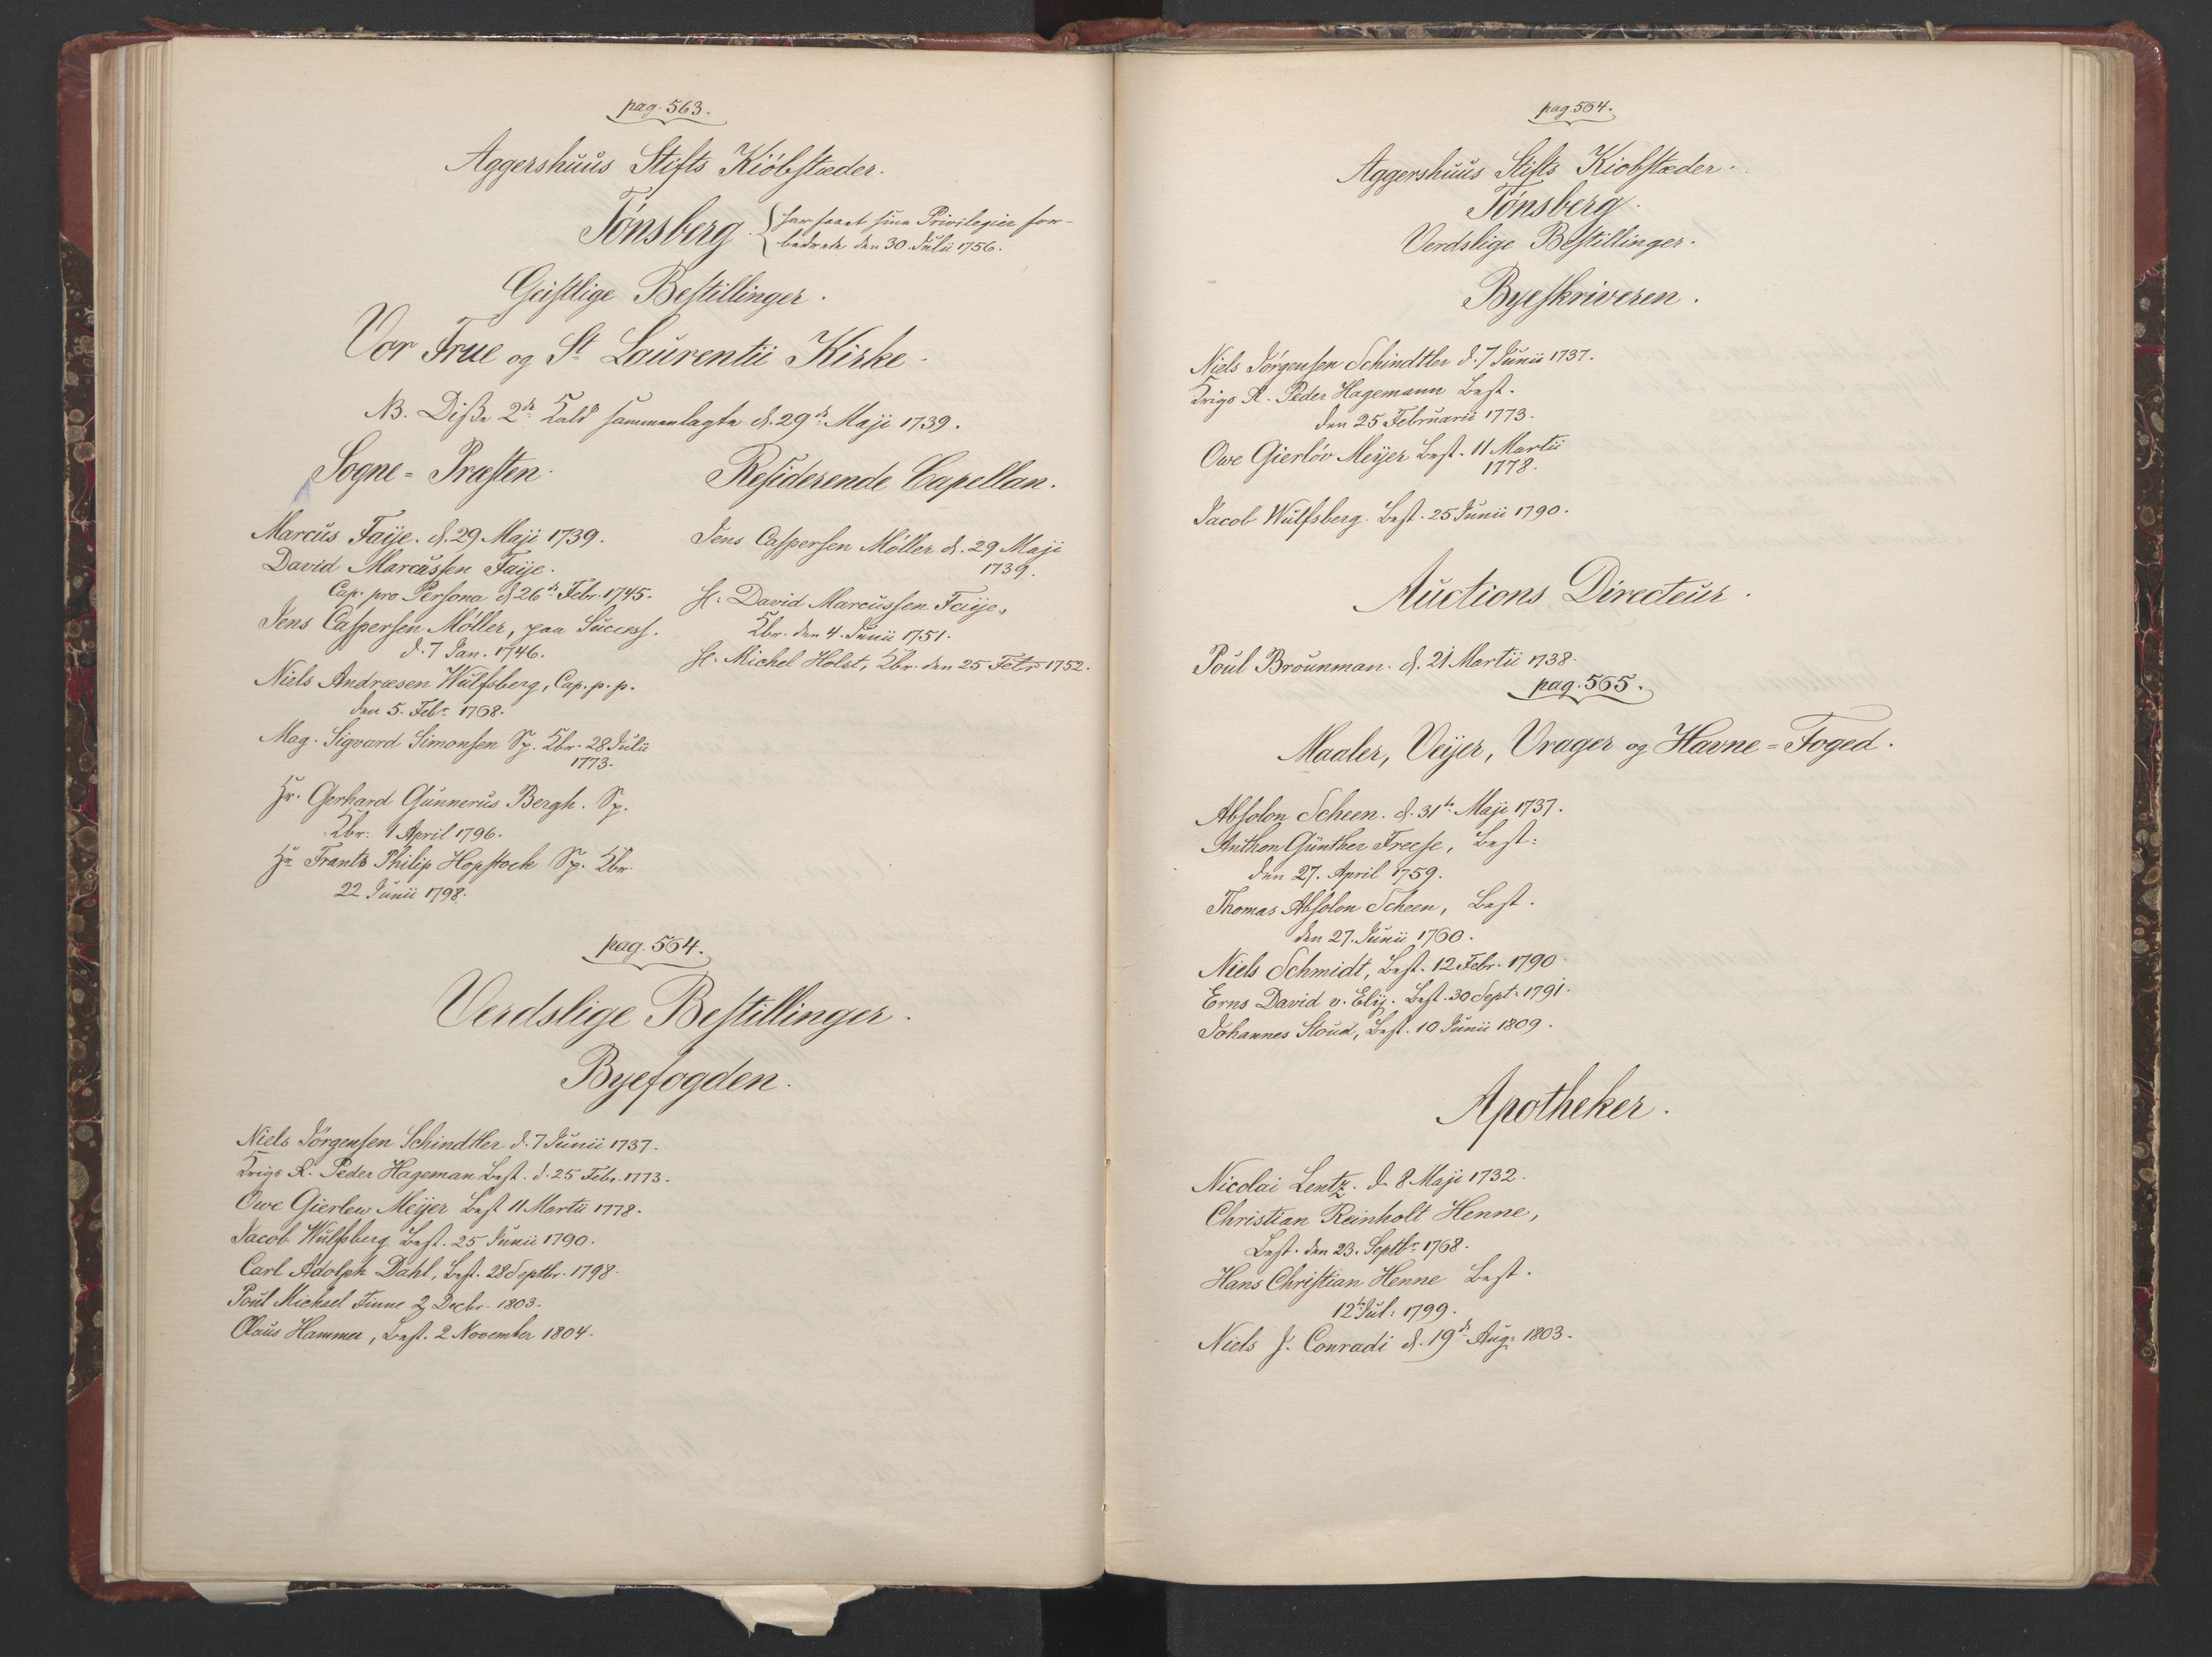 pag. 563.
Aggershuus Stifts Kiöbstæder.
Tönsberg. { har faaet sine Privilegier for-
bedrede den 30. Julii 1756.
Geistlige Bestillinger.
Vor Frue og St Laurentii Kirke.
NB. Disse 2de Kald sammenlagte d. 29de Maji 1739.
Sogne=Præsten.
Marcus Faije. d. 29 Maji 1739.
David Marcussen Faije.
Cap. pro Persona d. 26de Febr. 1745.
Jens Caspersen Möller, paa Success.
d. 7 Jan. 1746.
Niels Andræsen Wulfsberg, Cap. p. p.
den 5. Febr. 1768.
Mag. Sigvard Simonsen Sp. Kbr. 28 Julii
1773.
Hr. Gerhard Gunnerus Bergh. Sp.
Kbr. 1 April 1796.
Hr. Frantz Philip Hopstock Sp. Kbr.
22 Junii 1798.
Residerende Capellan.
Jens Caspersen Möller d. 29 Maji
1739.
H. David Marcussen Faije,
Kbr. den 4. Junii 1751.
H. Michel Holst, Kbr. den 25 Febr 1752.
pag. 564.
Verdslige Bestillinger.
Byefogden.
Niels Jörgensen Schindtler d. 7 Junii 1737.
Krigs R. Peder Hageman Best. d. 25 Febr. 1773.
Owe Gierlew Meijer Best 11 Martii 1778.
Jacob Wulfsberg Best. 25 Junii 1790.
Carl Adolph Dahl, Best. 28 Septbr. 1798.
Poul Michael Finne 2 Decbr. 1803.
Olaus Hammer, Best. 2 November 1804.
pag. 564.
Aggershuus Stifts Kiobstæder.
Tönsberg.
Verdslige Bestillinger.
Byeskriveren.
Niels Jörgensen Schindtler d. 7 Junii 1737.
Krigs R. Peder Hagemann Best.
den 25 Februarii 1773.
Owe Gierlöv Meijer Best. 11 Martii
1778.
Jacob Wulfsberg. Best. 25 Junii 1790.
Auctions Directeur.
Poul Brounman. d. 21 Martii 1738.
pag. 565.
Maaler, Veijer, Vrager og Havne=Foged.
Absolon Scheen. d. 31te Maji 1737.
Anthon Günther Freese, Best.
den 27. April 1759.
Thomas Absolon Scheen, Best.
den 27. Junii 1760.
Niels Schmidt, Best. 12 Febr. 1790
Erns David v. Elij. Best. 30 Sept. 1791.
Johannes Stoud, Best. 10 Junii 1809.
Apotheker.
Nicolai Lentz. d. 8 Maji 1732.
Christian Reinholt Henne,
Best. den 23. Septbr 1768.
Hans Christian Henne Best.
12te Jul: 1799.
Niels J. Conradi d. 19de Aug. 1803.